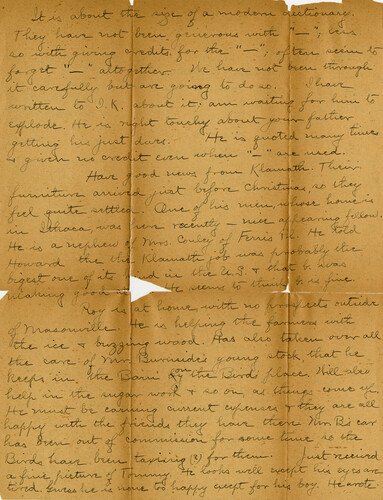 It is about the size of a modern dictionary.
They have not been generous with "—", less
so with giving credits, for the "—", often seem to
forget "—" altogether. We have not been through
it carefully but are going to do so. I have
written to I.K. about it, am waiting for him to
explode. He is right touchy about your father
getting his just dues. He is quoted many times
is given no credit even when "—" are used.
Have good news from Klamath. Their
furniture arrived just before Christmas, so they
feel quite settled. One of his men, whose home is
in Ithaca, was here recently - nice appearing fellow.
He is a nephew of Mrs. Conley of Ferris Pl. He told
Howard that the Klamath job was probably the
bigest one of its kind in the U.S. & that G. was
making good He seems to think G. is fine.
Roy is at home with no prospects outside
of Masonville. He is helping the farmers with
the ice & buzzing wood. Has also taken over all
the care of Mr. Burnside's young stock, that he
keeps in the Barn on the Bird's place. Will also
help in the sugar work & so on as things come up.
He must be earning current expenses & they are all
happy with the friends they have there. Wm B's car
has been out of commission for some time so the
Birds have been taxiing (?) for them. Just received
a fine picture of Tommy. He looks well except his eyes are
tired. Guess he is none too happy except for his boy. He wrote